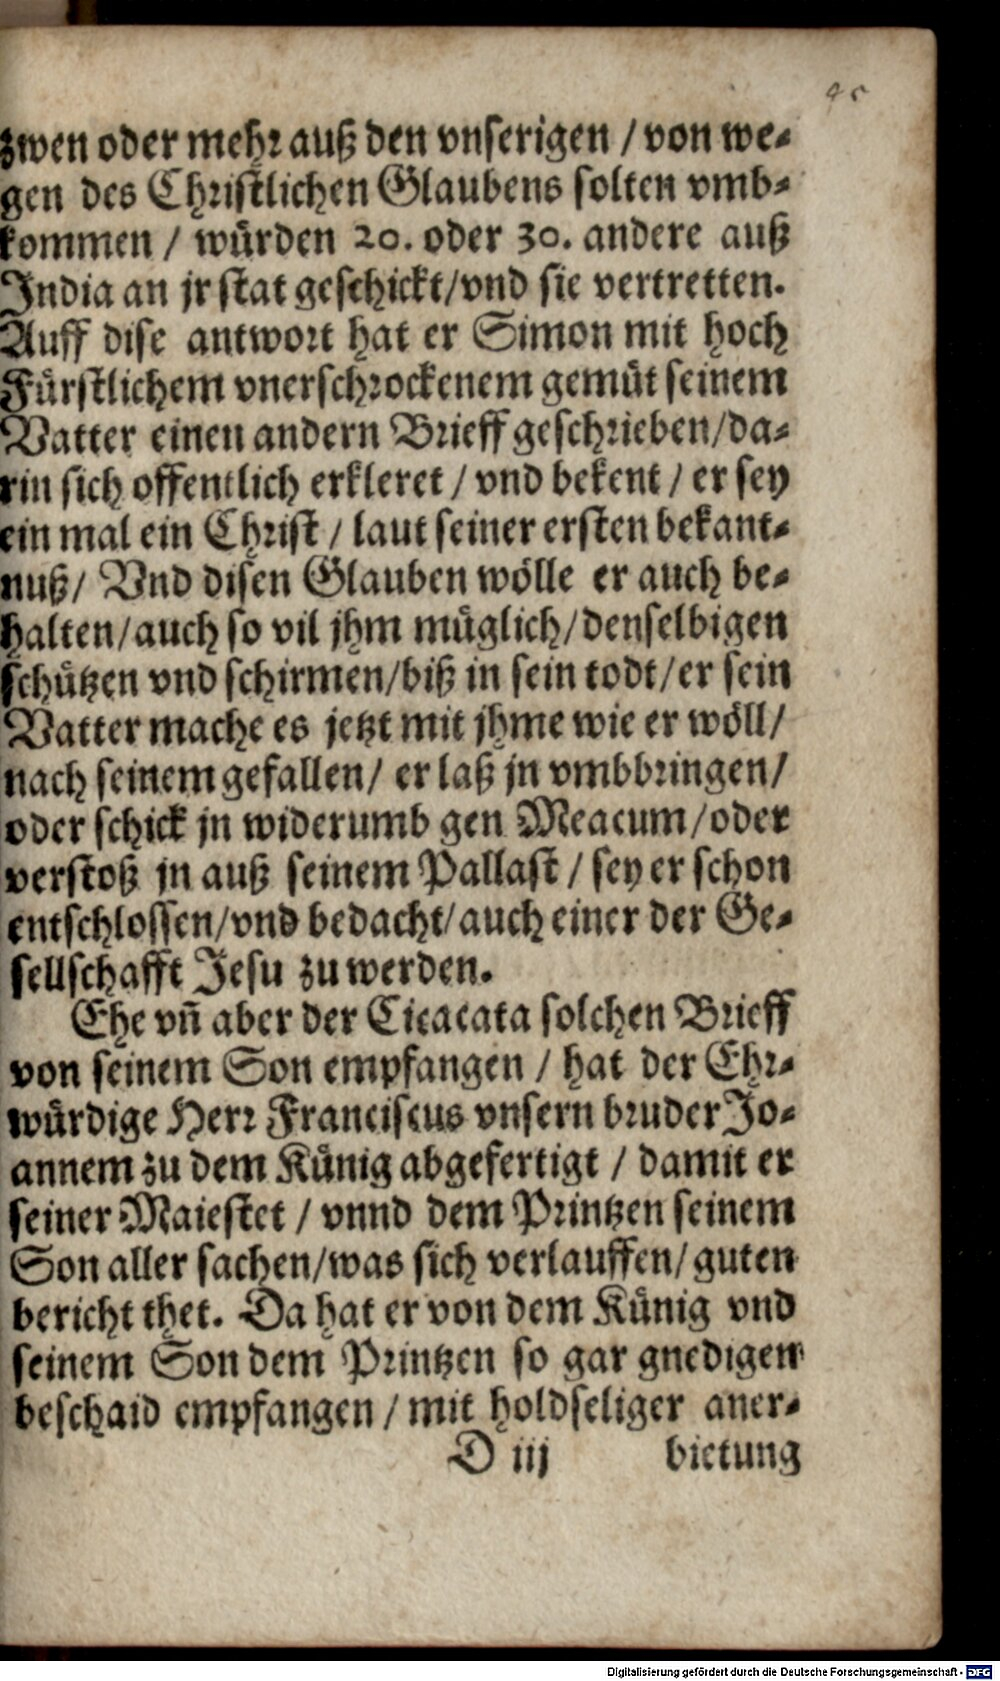 45
zwen oder mehr auß den vnserigen / von we-
gen des Christlichen Glaubens solten vmb-
kommen / würden 20. oder 30. andere auß
India an jr stat geschickt/vnd sie vertretten.
Auff dise antwort hat er Simon mit hoch
Fürstlichem vnerschrockenem gemüt seinem
Vatter einen andern Brieff geschrieben/da-
rin sich offentlich erkleret / vnd bekent / er sey
ein mal ein Christ / laut seiner ersten bekant-
nuß/ Vnd disen Glauben wölle er auch be-
halten/auch so vil jhm müglich/denselbigen
schützen vnd schirmen/biß in sein todt/er sein
Vatter mache es jetzt mit jhme wie er wöll/
nach seinem gefallen/ er laß jn vmbbringen/
oder schick jn widerumb gen Meacum/oder
verstoß jn auß seinem Pallast / sey er schon
entschlossen/vnd bedacht/auch einer der Ge-
sellschafft Jesu zu werden.
Ehe vñ aber der Cicacata solchen Brieff
von seinem Son empfangen / hat der Ehr-
würdige Herr Franciscus vnsern bruder Jo-
annem zu dem Künig abgefertigt / damit er
seiner Maiestet / vnnd dem Printzen seinem
Son aller sachen/was sich verlauffen/guten
bericht thet. Da hat er von dem Künig vnd
seinem Son dem Printzen so gar gnedigen
beschaid empfangen / mit holdseliger aner-
D iij bietung
Digitalisierung gefördert durch die Deutsche Forschungsgemeinschaft - DFG